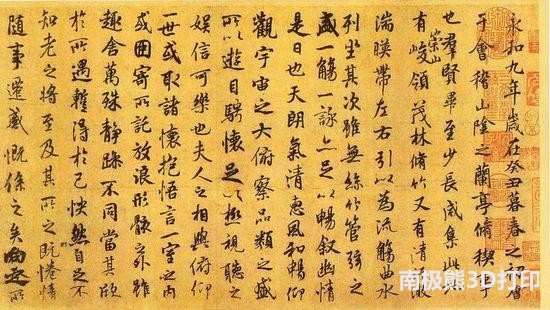 永和九年歲在癸丑暮春之初會
于會稽山陰之蘭亭脩稧事
也羣賢畢至少長咸集此地
有崇山峻領茂林脩竹又有清流激
湍暎帶左右引以為流觴曲水
列坐其次雖無絲竹管弦之
盛一觴一詠亦足以暢敘幽情
是日也天朗氣清惠風和暢仰
觀宇宙之大俯察品類之盛
所以遊目騁懷足以極視聽之
娛信可樂也夫人之相與俯仰
一世或取諸懷抱悟言一室之內
或因寄所託放浪形骸之外雖
趣舍萬殊靜躁不同當其欣
於所遇蹔得於己怏然自足不
知老之將至及其所之既惓情
隨事遷感慨係之矣向之所
南极熊3D打印